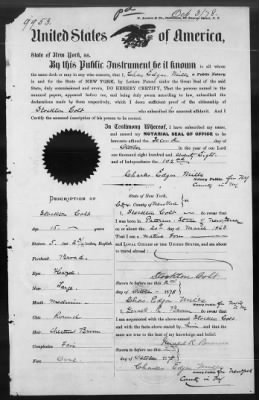 9953.
Oct 3/78
United States of America,
State of New York, ss.
By this Public Instrument be it known to
all whom the same doth or may in any wise concern, that I, Chas. Edgar Mills a Public Notary
in and for the State of NEW YORK, by Letters Patent under the Great Seal of the said
State, duly commissioned and sworn, DO HEREBY CERTIFY, That the persons named in the
annexed papers, appeared before me, and being duly sworn according to law, subscribed the
declarations made by them respectively, which I deem sufficient proof of the citizenship of
Stockton Colt who subscribed the annexed affidavit. And I
Certify the annexed description of his person to be correct.
In Testimony Whereof, I have subscribed my name,
and caused my NOTARIAL SEAL OF OFFICE to be
hereunto affixed, the Second day of
October in the year of our Lord
one thousand eight hundred and seventy Eight
and of Independence the 102nd
Charles Edgar Mills
Notary Public for NY
County in NY
DESCRIPTION OF
Stockton Colt
Age, 15 years
Stature, 5 feet
inches, English.
Forehead, Broad
Eyes, Hazel
Nose, Large
Mouth, Medium
Chin, Round
Hair, Chestnut Brown
Complexion, Fair
Face, Oval
State of New York,
County of New York
I, Stockton Colt do swear that
I was born in Paterson State of New Jersey
on or about the 20th day of March 1863
that I am a Native Born
AND LOYAL CITIZEN OF THE UNITED STATES, and am
about to travel abroad.
Stockton Colt
Sworn to before me this 2nd
day of October 1878
Chas Edgar Mills
I am acquainted with the above-named Stockton Colt
and with the facts above stated by him and that the
same are true to the best of my knowledge and belief.
Sworn to before me this 2nd
day of October 1878
Charles Edgar Mills
Notary Public for New York
County in NY